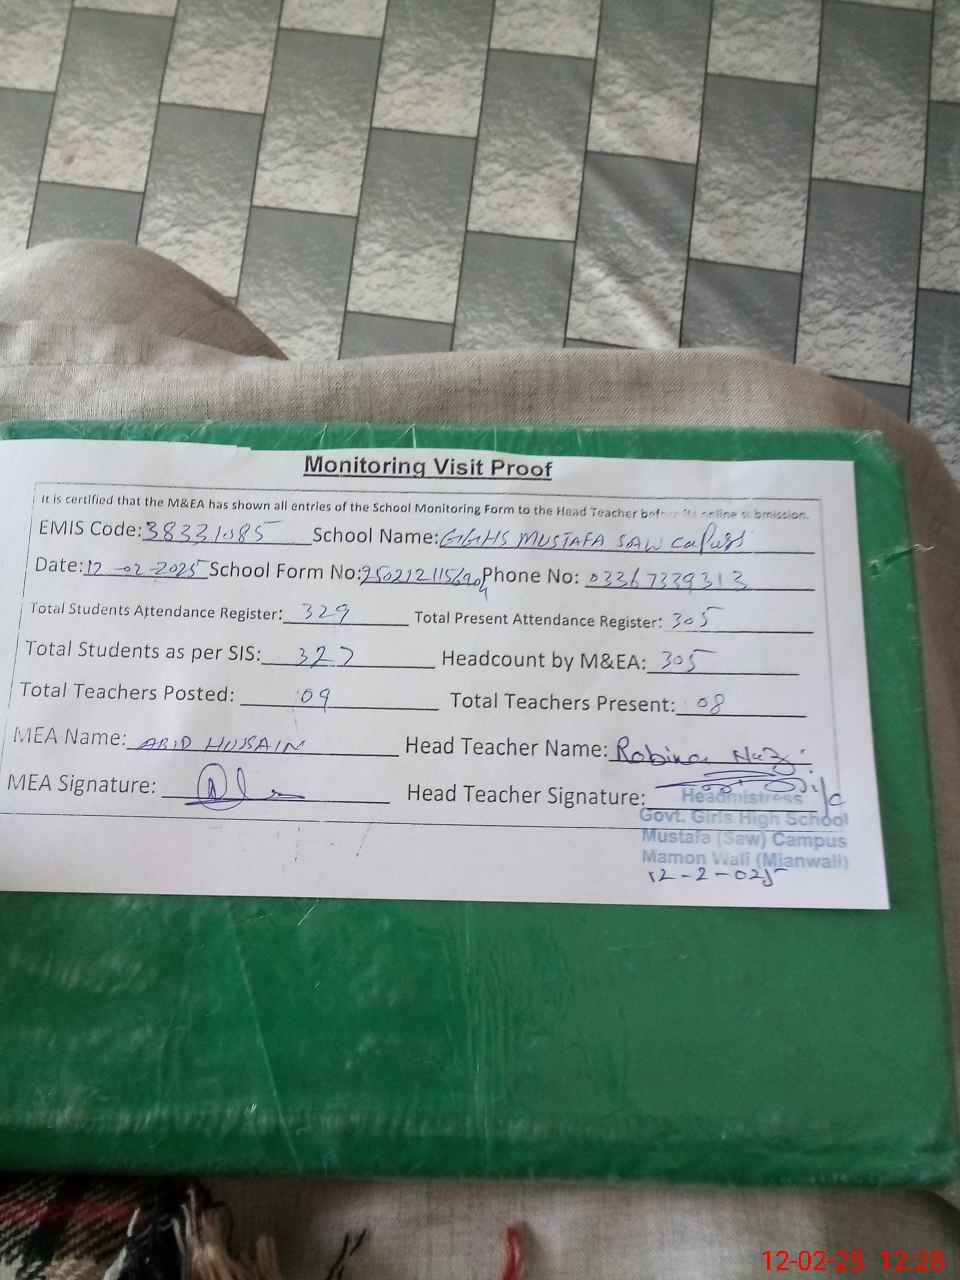 Monitoring Visit Proof
It is certified that the M&EA has shown all entries of the School Monitoring Form to the Head Teacher before its online submission.
EMIS Code: 38331085 School Name: GGHS MUSTAFA SAW
Date: 12-02-2025 School Form No: Phone No: 03367339313
Total Students Attendance Register: 329 Total Present Attendance Register: 305
Total Students as per SIS: 327 Headcount by M&EA: 305
Total Teachers Posted: 09 Total Teachers Present: 08
MEA Name: ABID HUSSAIN Head Teacher Name: Robina
MEA Signature: Head Teacher Signature:
Headmistress
Govt. Girls High School
Mustafa (Saw) Campus
Mamon Wali (Mianwali)
12-2-025
12-02-25 12:28